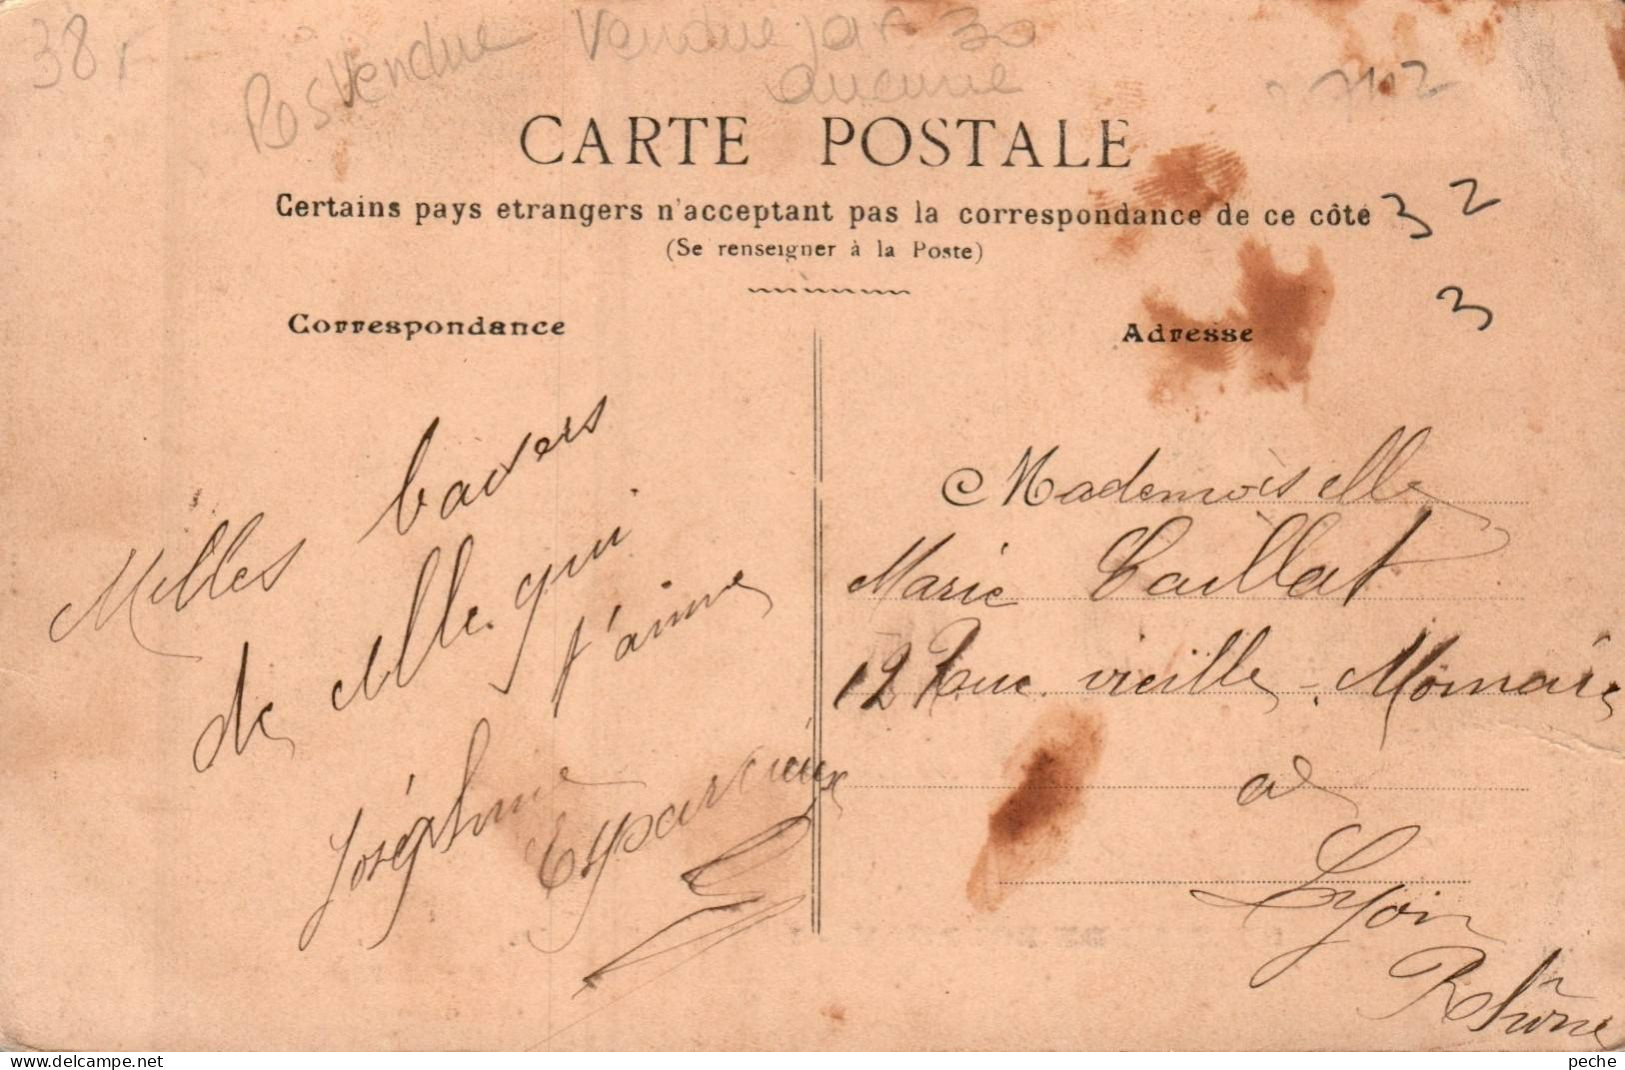 38 f
Pas Vendue Vendue par 30
aucune
CARTE POSTALE
Certains pays etrangers n'acceptant pas la correspondance de ce côté 3 2
(Se renseigner à la Poste)
3
Correspondance
Adresse
Milles baisers
de elle qui
t'aime
Joséphine
Mademoiselle
Marie Caillat
12 Rue vieille-Monnaie
a
Lyon
Rhône
peche